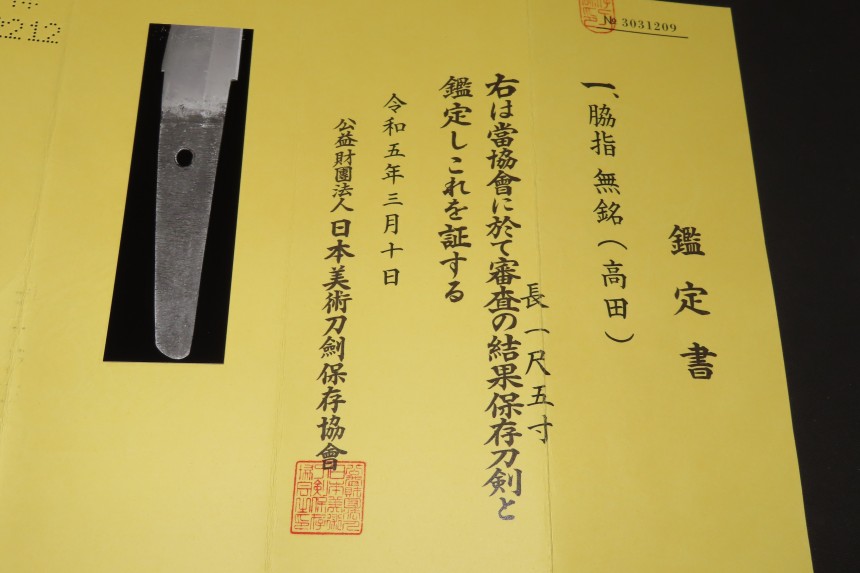 № 3031209
鑑定書
一、脇指 無銘(高田)
長一尺五寸
右は當協會に於て審査の結果保存刀剣と
鑑定しこれを証する
令和五年三月十日
公益財團法人 日本美術刀劍保存協會
2212